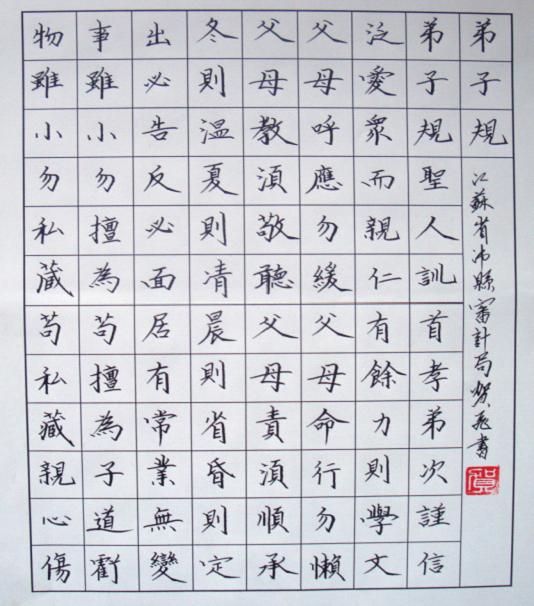 弟子規
江蘇省沛縣審計局賀飛書
賀
弟子規聖人訓首孝弟次謹信
泛愛眾而親仁有餘力則學文
父母呼應勿緩父母命行勿懶
父母教須敬聽父母責須順承
冬則溫夏則凊晨則省昏則定
出必告反必面居有常業無變
事雖小勿擅為苟擅為子道虧
物雖小勿私藏苟私藏親心傷